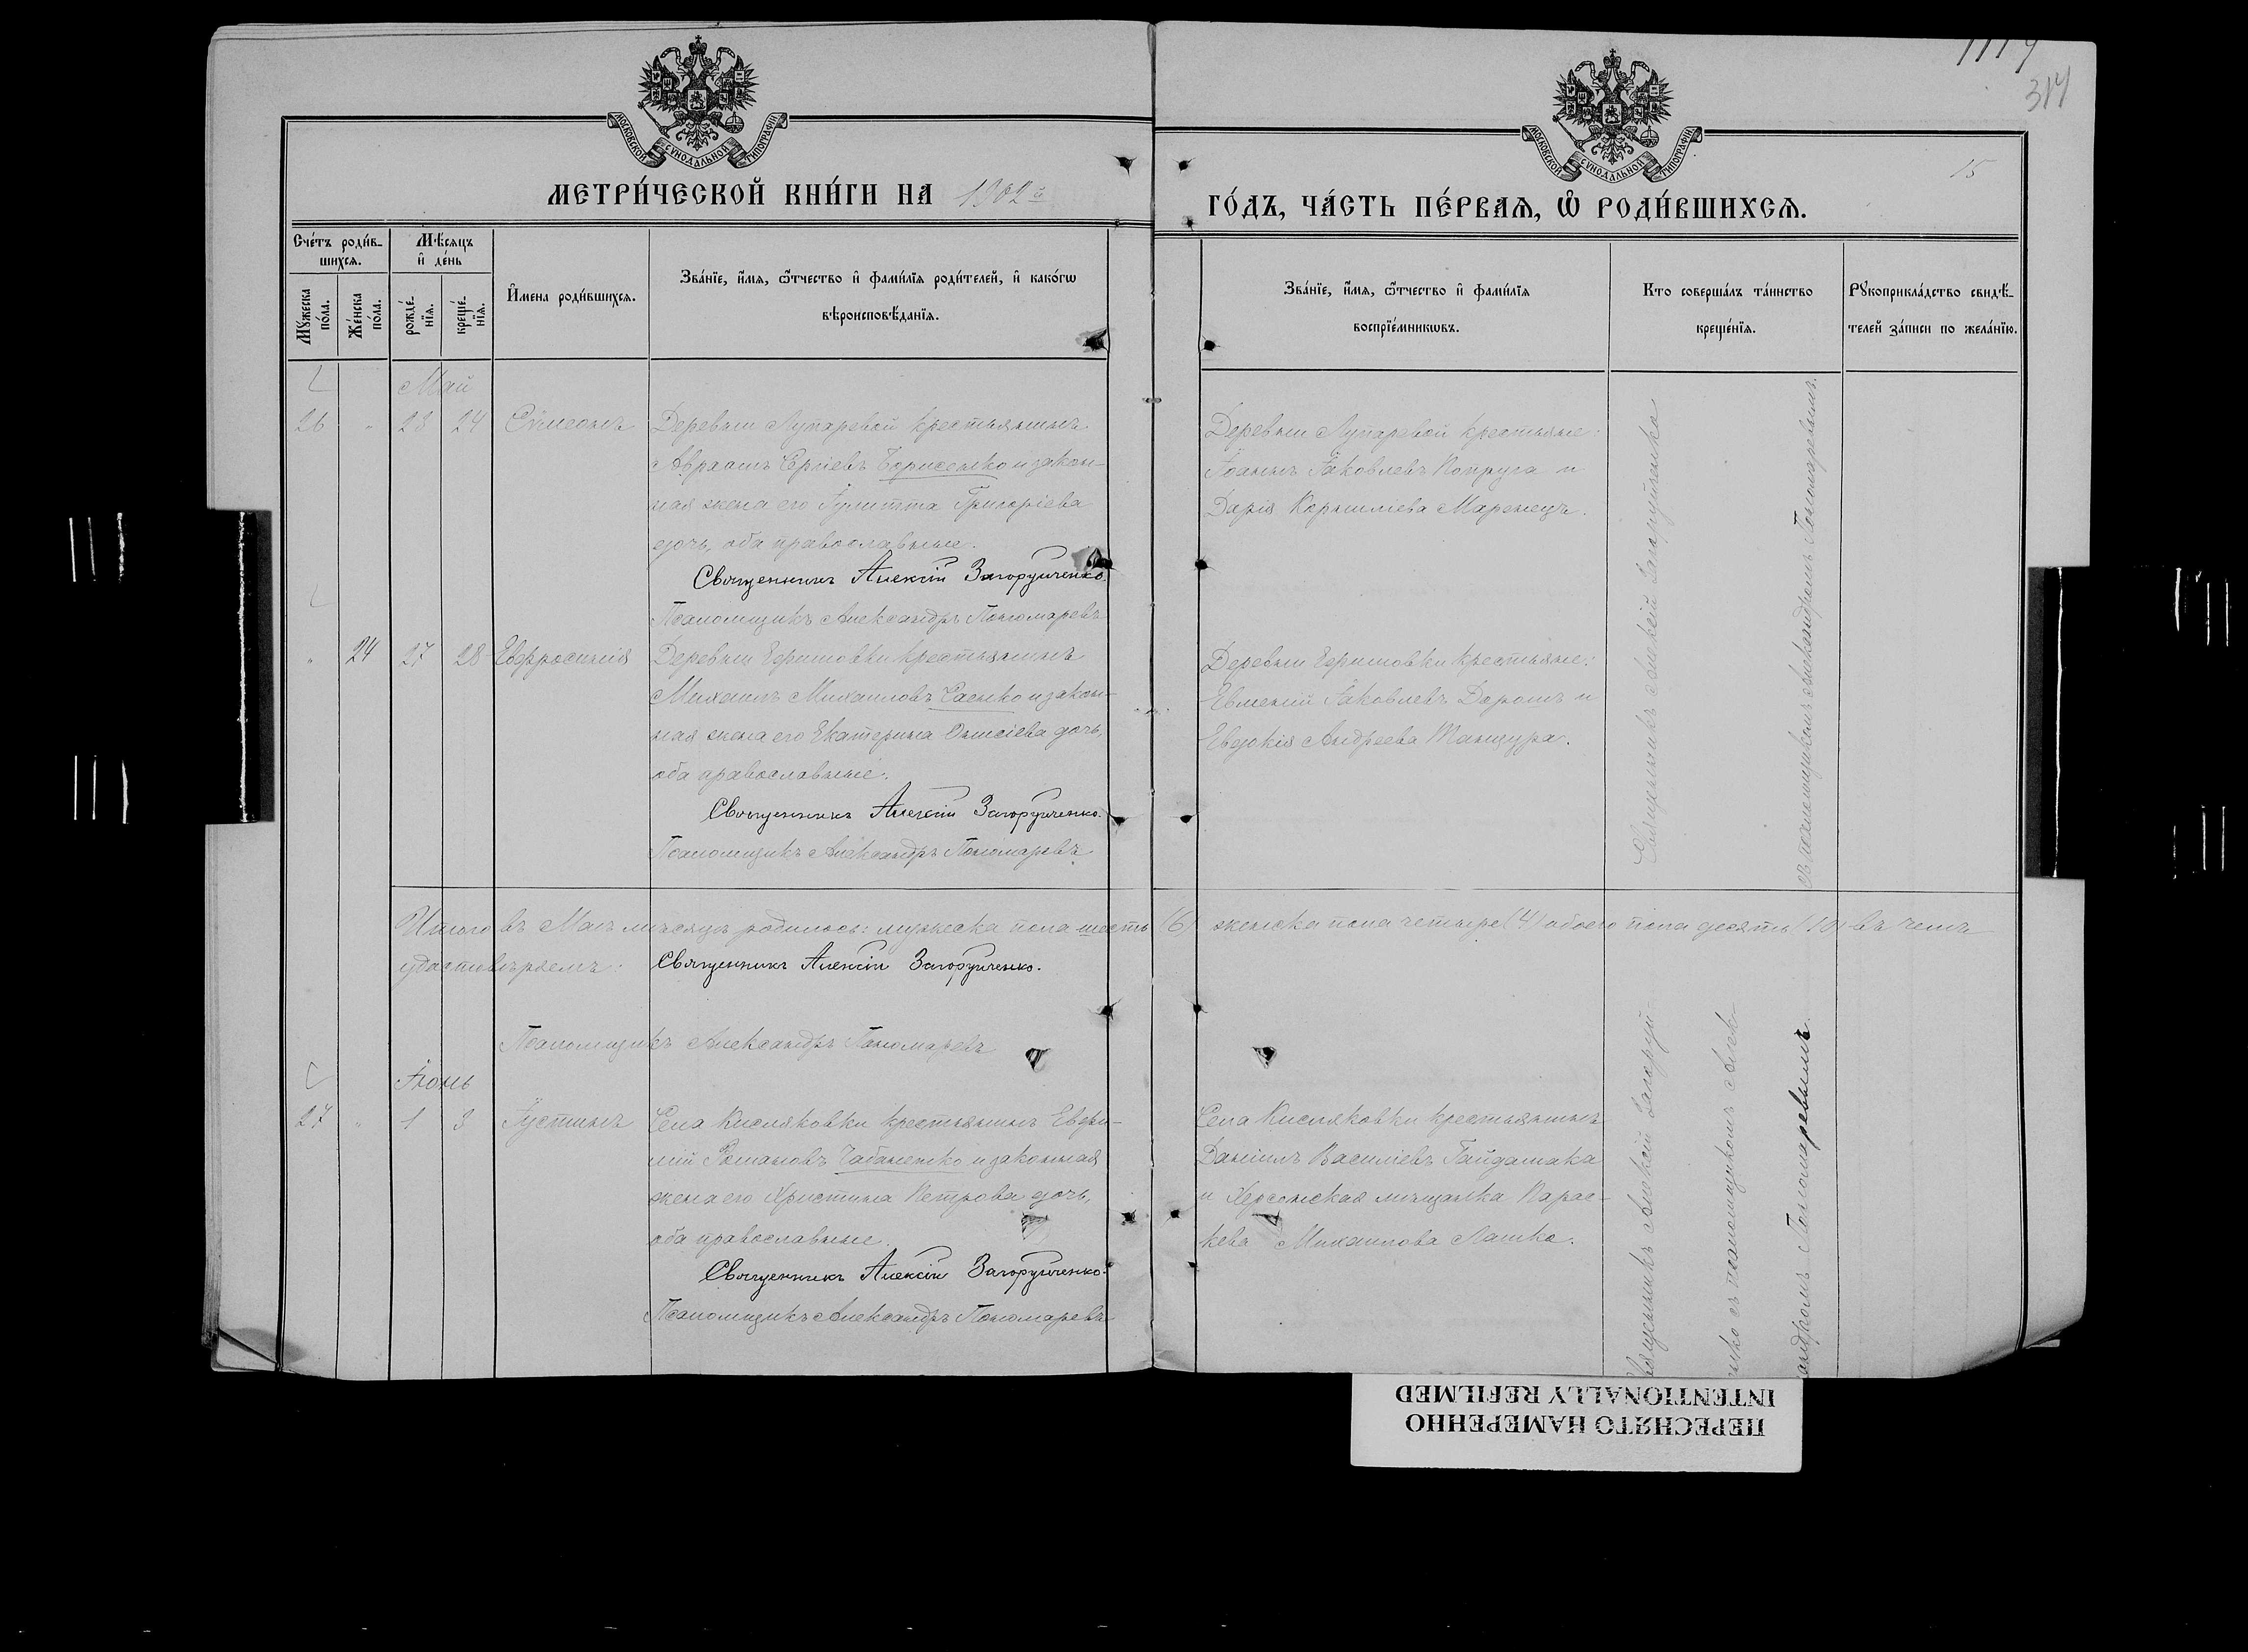 1119
314
15
МОСКОВСКОЙ СУНОДАЛЬНОЙ ТИПОГРАФІИ
МОСКОВСКОЙ СУНОДАЛЬНОЙ ТИПОГРАФІИ
МЕТРИ́ЧЕСКОЙ КНИ́ГИ НА 1902й
ГО́ДЪ, ЧА́СТЬ ПЕ́РВАѦ, Ѡ РОДИ́ВШИХСѦ.
Сче́тъ роди́в-
шихсѧ.
Мꙋ́жеска по́ла.
Же́нска по́ла.
Мѣ́сѧцъ
и҆ де́нь
рожде́-
нїѧ.
креще́-
нїѧ.
И҆мена роди́вшихсѧ.
Зва́нїе, и҆́мѧ, ѻ҆́тчество и҆ фами́лїѧ роди́телей, и҆ како́гѡ
вѣроисповѣ́данїѧ.
Зва́нїе, и҆́мѧ, ѻ҆́тчество и҆ фами́лїѧ
воспрїе́мникѡвъ.
Кто соверша́лъ та́инство
креще́нїѧ.
Рꙋкоприкла́дство свидѣ́-
телей за́писи по жела́нїю.
Май
26 " 23 24 Сѵмеонъ
Деревни Лупаревой крестьянинъ
Авраамъ Сергіевъ Борисенко и закон-
ная жена его Іулитта Григоріева
дочь, оба православные.
Священникъ Алексій Загоруйченко.
Псаломщикъ Александръ Пономаревъ
Деревни Лупаревой крестьяне:
Іоаннъ Іаковлевъ Попруга и
Дарія Корниліева Маренецъ.
Священникъ Алексій Загоруйченко
съ псаломщикомъ Александромъ Пономаревымъ.
" 24 27 28 Евфросинія
Деревни Ефимовки крестьянинъ
Михаилъ Михаиловъ Саенко и закон-
ная жена его Екатерина Онисіева дочь,
оба православные.
Священникъ Алексій Загоруйченко.
Псаломщикъ Александръ Пономаревъ
Деревни Ефимовки крестьяне:
Евмений Іаковлевъ Дорошъ и
Евдокія Андреева Танцура.
Итого въ Маѣ мѣсяцѣ родилось: мужеска пола шесть (6) женска пола четыре (4) обоего пола десять (10) въ чемъ
удостовѣряемъ: Священникъ Алексій Загоруйченко.
Псаломщикъ Александръ Пономаревъ
Іюнь
27 " 1 3 Іустинъ
Села Кисляковки крестьянинъ Евфи-
мій Романовъ Чабаненко и законная
жена его Христина Петрова дочь,
оба православные.
Священникъ Алексій Загоруйченко.
Псаломщикъ Александръ Пономаревъ
Села Кисляковки крестьянинъ
Даніилъ Василіевъ Гайдамака
и Херсонская мѣщанка Парас-
кева Михаилова Лашко.
Священникъ Алексій Загоруй-
ченко съ псаломщикомъ Алек-
сандромъ Пономаревымъ.
ПЕРЕСНЯТО НАМЕРЕННО
INTENTIONALLY REFILMED